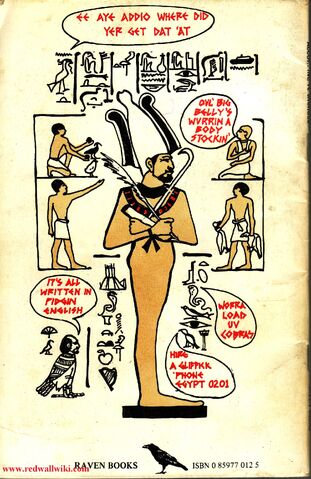 EE AYE ADDIO WHERE DID
YER GET DAT 'AT
OVL' BIG
BELLY'S
WURRIN A
BODY
STOCKIN'
IT'S ALL
WRITTEN IN
PIDGIN
ENGLISH
WORRA
LOAD
UV
COBRA'S
HIRE
A GLIPHIK
'PHONE
EGYPT 0201
www.redwallwiki.com
RAVEN BOOKS
ISBN 0 85977 012 5